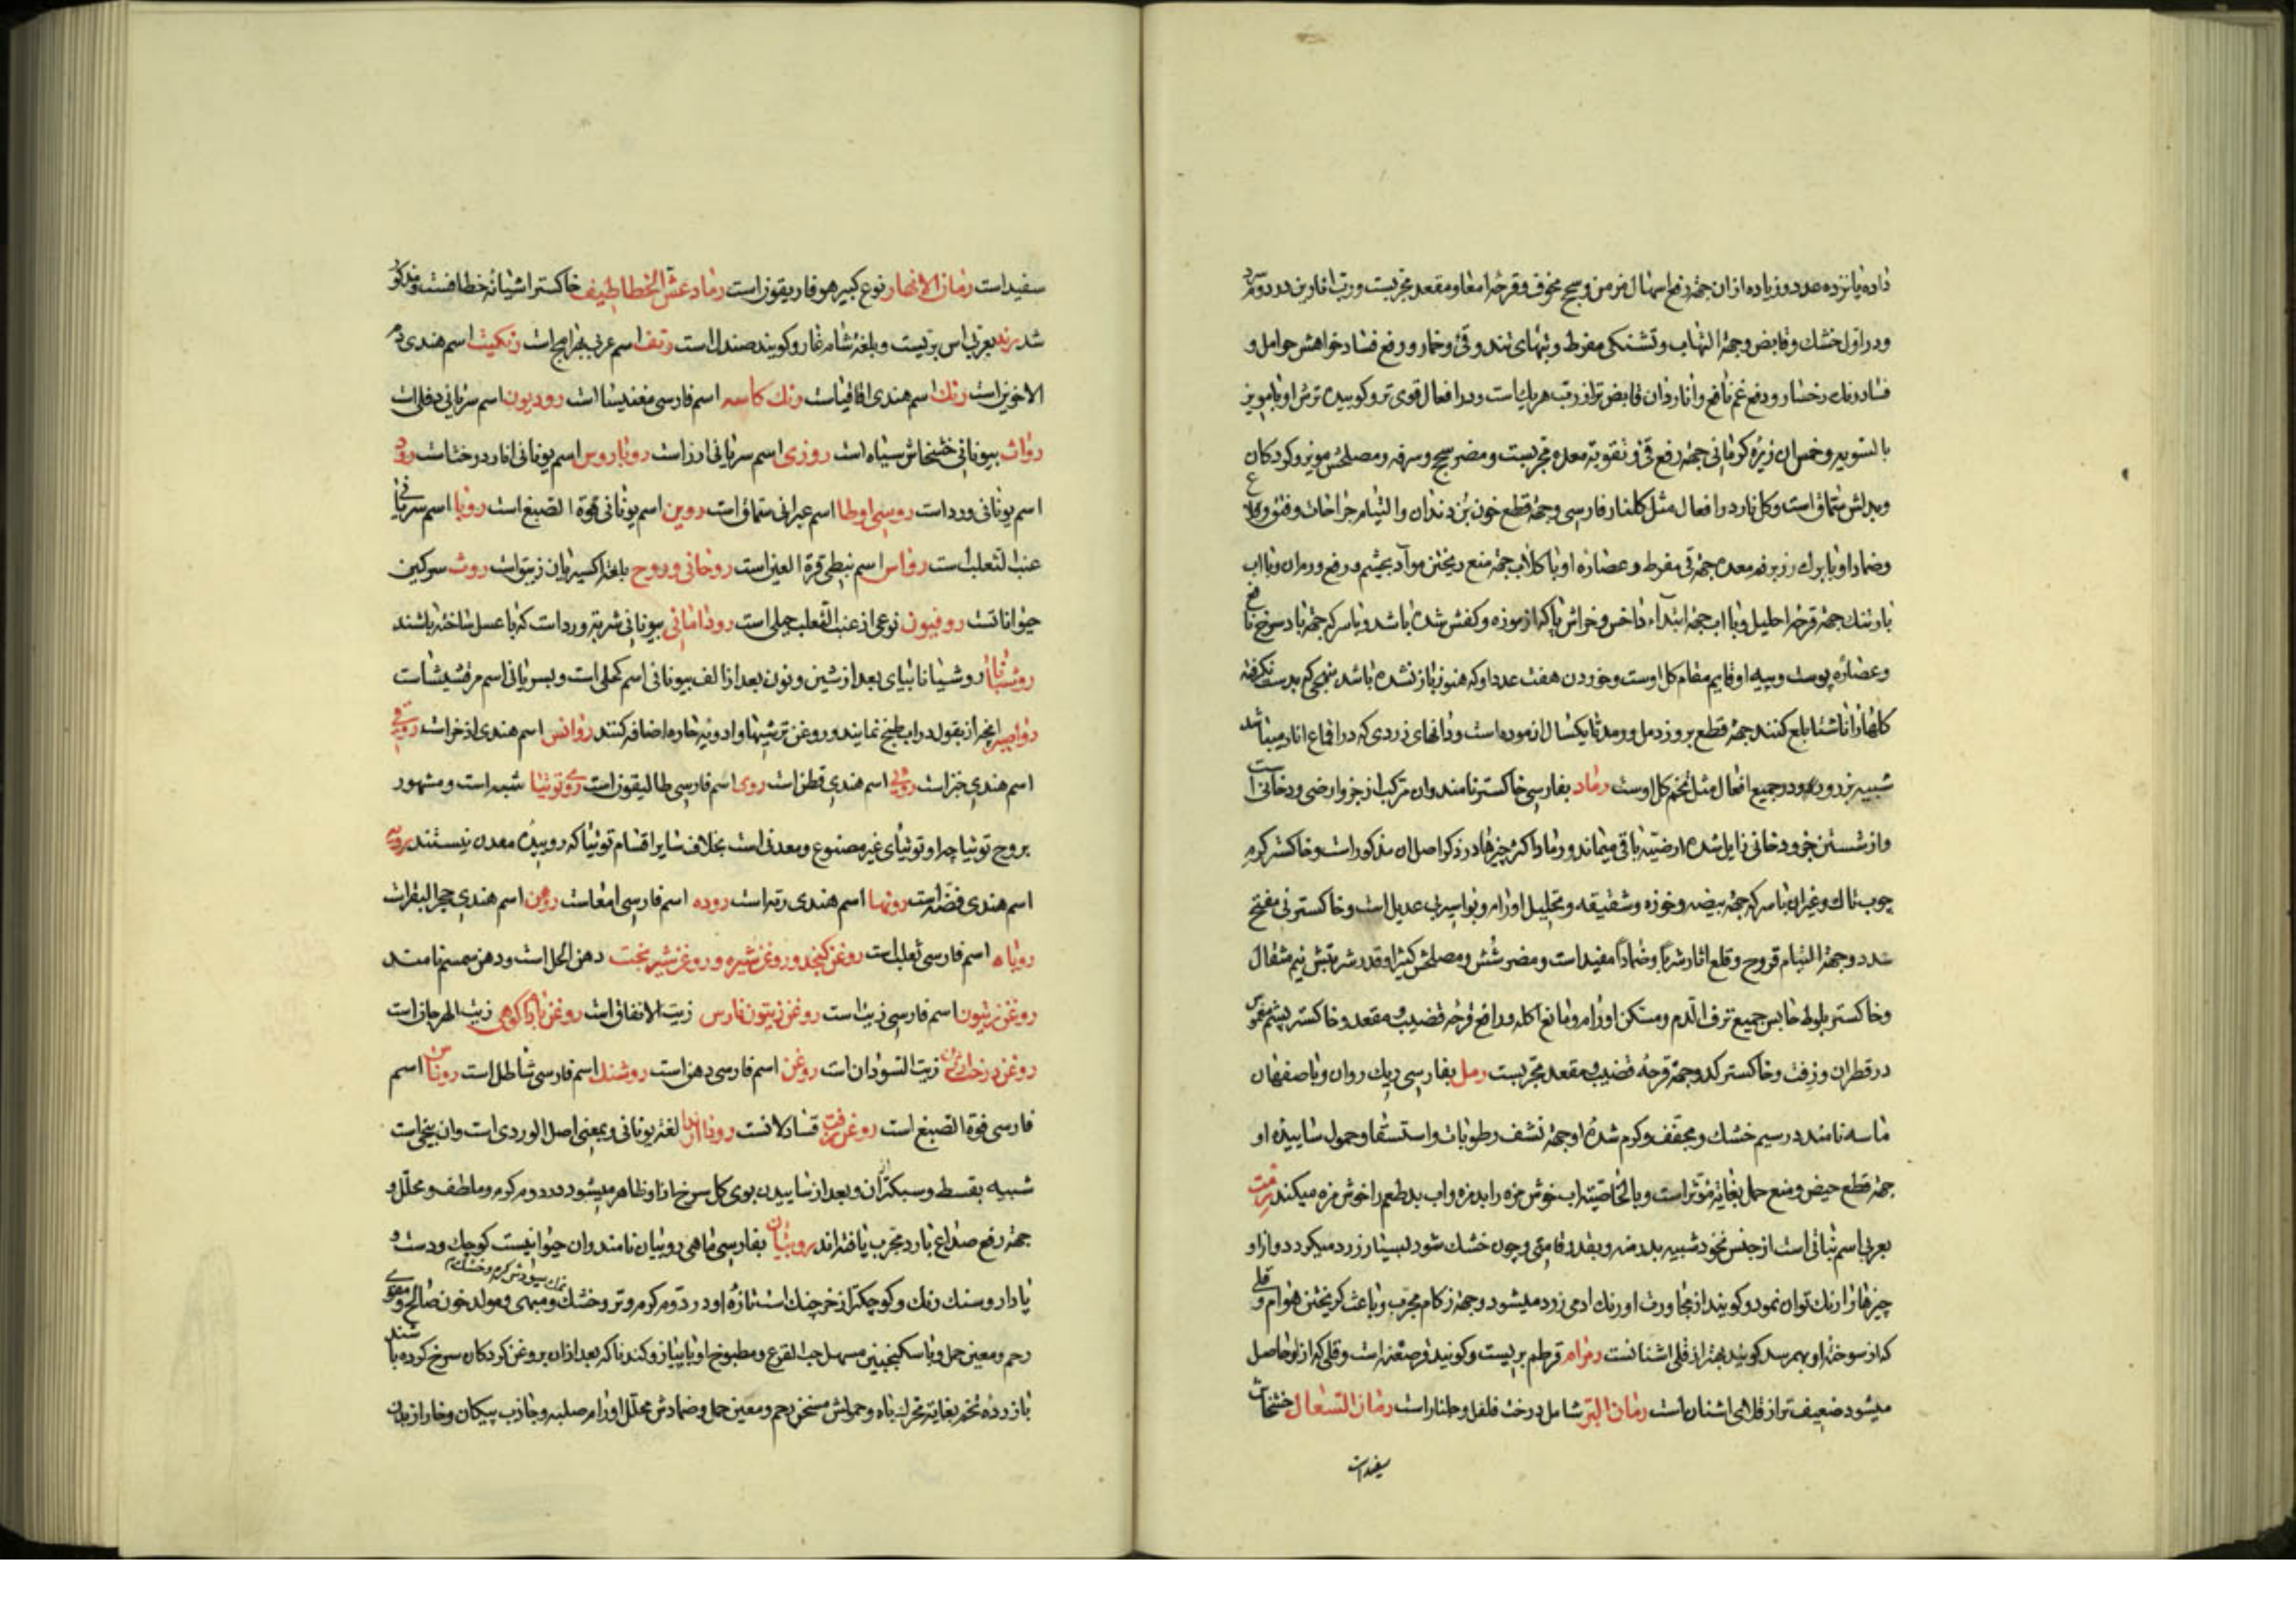 داده پانزده عدد و زیاده ازان جهة رفع اسهال مزمن و سحج مخوف و قرحه امعا و مقعد مجربست و رب انارین در دوم سرد
و در اول خشك و قابض و جهة التهاب و تشنکی مفرط و تبهای تند و قی و خمار و رفع فساد خواهش حوامل و
فساد رنك رخسار و دفع غم نافع و اناردان قابض تر از رب هر یك است و در افعال قوی تر و کوبیده ترش او با مویز
بالسویه و خمس ان زیره کرمانی جهة رفع قی و تقویة معده مجربست و مضر سحج و سرفه و مصلحش مویز و کودکان
و بدلش سماق است و کل نار در افعال مثل کلنار فارسی و جهة قطع خون بن دندان و التیام جراحات و فتق
و ضماد او با برك رز بر فم معده جهة قی مفرط و عصاره او با کلاب جهة منع ریختن مواد بچشم و رفع ورم ان و با اب
بارتنك جهة قرحه احلیل و با اب جهة ابتداء داخس و خراش پا که از موزه و کفش شده باشد و با سرکه جهة باد سرخ نافع
و عصاره پوست و پیه او قایم مقام کل اوست و خوردن هفت عدد او که هنوز باز نشده باشد بنهجی که بدست نکرفته
کلها را ناشتا بلع کنند جهة قطع بروز دمل و رمد تا یکسال ازموده است و دانهای زردی که در اقماع انار میباشد
شبیه بزرورد و در جمیع افعال مثل تخم کل اوست رماد بفارسی خاکستر نامند و ان مرکب از جزو ارضی و دخانی است
و از شستن جزو دخانی زایل شده ارضیة باقی میماند و رماد اکثر چیزها در ذکر اصل ان مذکور است و خاکستر کرم
چوب تاك و غیر ان با سرکه جهة بیضه و خوذه و شقیقه و تحلیل اورام و بواسیر بی عدیل است و خاکستر نی مفتح
سدد و جهة التیام قروح و قلع اثار شربا و ضمادا مفید است و مضر شش و مصلحش کتیرا و قدر شربتش نیم مثقال
و خاکستر بلوط حابس جمیع نزف الدم و مسکن اورام و مانع اکله و رافع قرحه قضیب و مقعد و خاکستر پشم مغموس
در قطران و زفت و خاکستر کدو جهة قرحه قضیب و مقعد مجربست رمل بفارسی ریك روان و باصفهان
ماسه نامند در سیم خشك و مجفف و کرم شده او جهة نشف رطوبات و استسقا و حمول ساییده او
جهة قطع حیض و منع حمل بغایة مؤثر است و بالخاصیة اب خوش مزه را بدمزه و اب بدطعم را خوش مزه میکند رمث
بعربی اسم نباتی است از جنس نخود شبیه بدرمنه و بقدر قامتی و چون خشك شود بسیار زرد میکردد و از او
چیزها را رنك توان نمود و کویند از مجاورت او رنك ادمی زرد میشود و جهة زکام مجرب و باعث کریختن هوام و قلی
که از سوخته او بهم رسد کویند بهتر از قلی اشنانست رمرام قرطم بریست و کویند قرصعنه است و قلی که از او حاصل
میشود ضعیف تر از قلای اشنان است رمان البر شامل درخت فلفل و جلنار است رمان السعال خشخاش
سفید است
سفید است رمان الانهار نوع کبیر هوفاریقون است رماد عش الخطاطیف خاکستر اشیانه خطافست و مذکور
شد رند بعربی اس بریست و بلغة شام غار و کویند صندل است رنف اسم عربی بهرامج است رنکیت اسم هندی دم
الاخوین است رنك اسم هندی اقاقیاست رنك کاسه اسم فارسی مغنیسا است رودیون اسم سریانی دفلی است
رواث بیونانی خشخاش سیاه است روزی اسم سریانی ارز است روباروس اسم یونانی انار درختاست رود
اسم یونانی ورد است روسی اوطا اسم عبرانی سماق است روین اسم یونانی فوة الصبغ است روبا اسم سریانی
عنب الثعلب است رواس اسم نبطی قرة العین است روحانی و روح بلغة اکسیریان زیبق است روث سرکین
حیواناتست روفیون نوعی از عنب الثعلب جبلی است رودامانی بیونانی شربة ورد است که با عسل ساخته باشند
روشنانا روشیانا بیای بعد از شین و نون بعد از الف بیونانی اسم کحلی است و بسریانی اسم مرقشیشاست
رواصیر انچه از بقول در اب طبخ نمایند و روغن ترشیها و ادویة حاره اضافه کنند روانس اسم هندی اذخر است روتی
اسم هندی خبز است روئی اسم هندی قطن است روی اسم فارسی طالیقون است روی توتیا شبه است و مشهور
بروح توتیا چه او توتیای غیر مصنوع و معدنی است بخلاف سایر اقسام توتیا که روییده معدن نیستند روپیه
اسم هندی فضه است رونها اسم هندی رتم است روده اسم فارسی امعاست روهن اسم هندی حجر البقر است
روباه اسم فارسی ثعلب است روغن کنجد و روغن شیره و روغن شیر پخت دهن الحل است و دهن سمسم نامند
روغن زیتون اسم فارسی زیت است روغن زیتون فارس زیت الانفاق است روغن بادام کوهی زیت الهرجان است
روغن درختان زیت السودان است روغن اسم فارسی دهن است روشنك اسم فارسی شاطل است روناس اسم
فارسی فوة الصبغ است روغن زفت قسادلانست رودیا لغة یونانی و بمعنی اصل الوردی است و ان بیخی است
شبیه بقسط و سبکتر از ان و بعد از ساییدن بوی کل سرخ از او ظاهر میشود در دوم کرم و ملطف و محلل و
جهة رفع صداع بارد مجرب یافته اند روبیان بفارسی ماهی روبیان نامند و ان حیوانیست کوچك و دست و
پا دار و سنك رنك و کوچکتر از خرچنك است تازه او در دوم کرم و تر و خشك و مبهی و مولد خون صالح و مقوی
رحم و معین حمل و با سکنجبین مسهل حب القرع و مطبوخ او با پیاز و کندنا که بعد از ان بروغن کردکان سرخ کرده باشند
با زرده تخم بغایة محرك باه و حمولش مسخن رحم و معین حمل و ضمادش محلل اورام صلبه و جاذب پیکان و خار از بدن